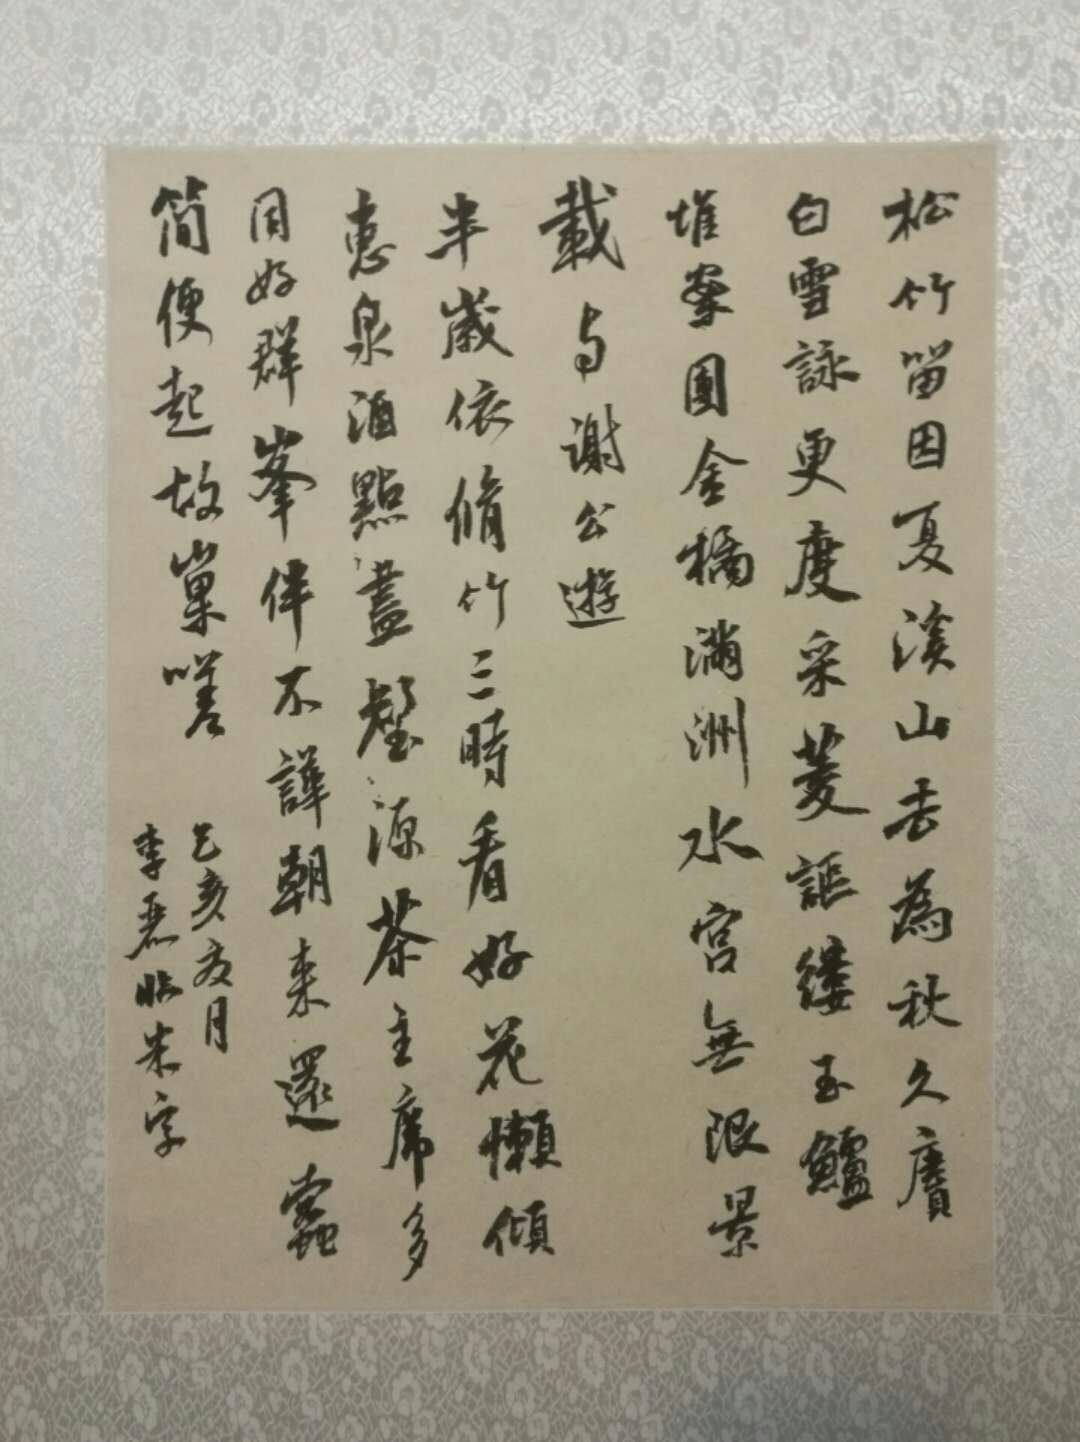 松竹留因夏溪山去為秋久賡
白雪詠更度采菱謳縷玉鱸
堆案團金橘滿洲水宮無限景
載与謝公遊
半歲依脩竹三時看好花懶傾
惠泉酒點盡壑源茶主席多
同好群峯伴不譁朝来還蠹
簡便起故巢嗟
己亥亥月
李君臨米字